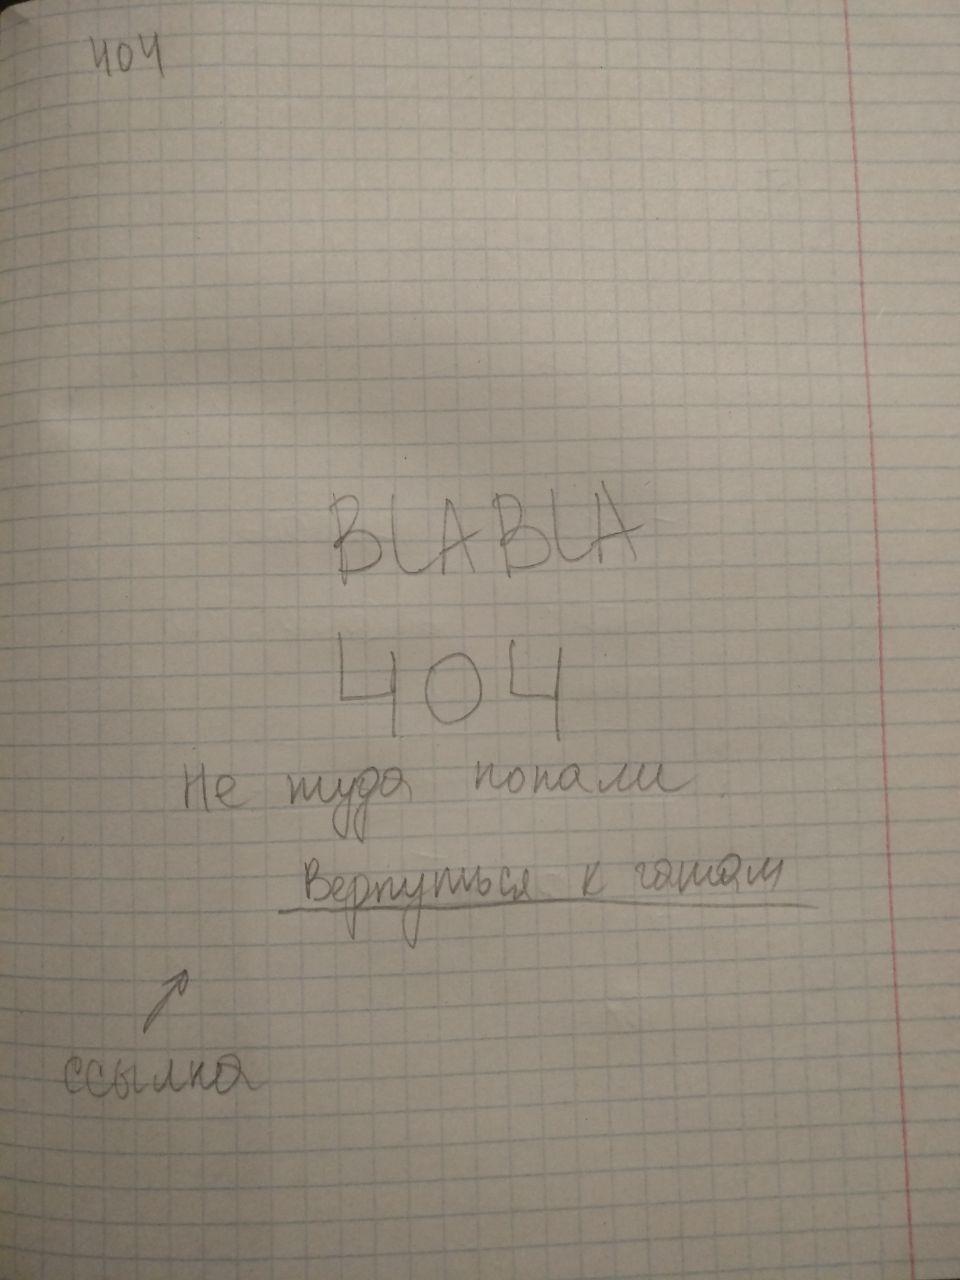 404
BLABLA
404
Не туда попали
Вернуться к чатам
ссылка